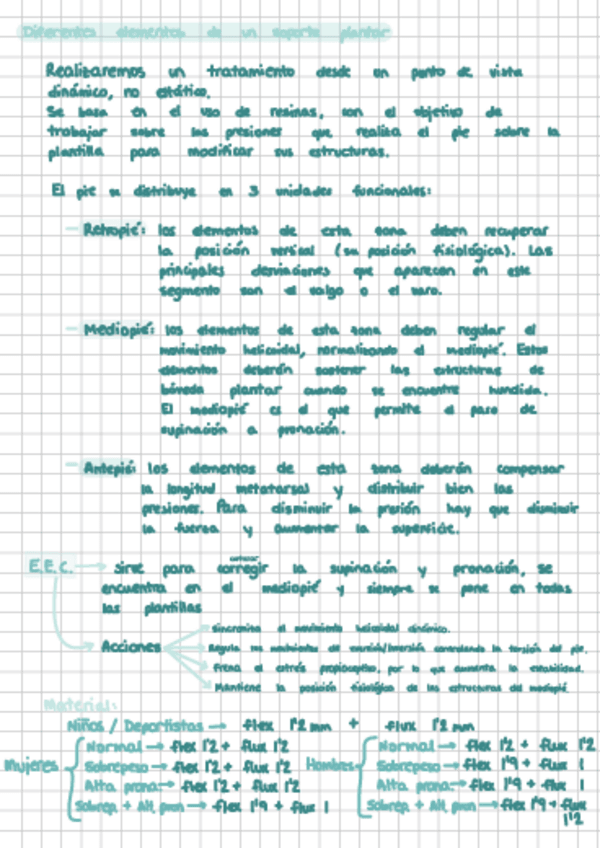 Diferentes elementos de un soporte plantar
Realizaremos un tratamiento desde un punto de vista
dinámico, no estático.
Se basa en el uso de resinas, con el objetivo de
trabajar sobre las presiones que realiza el pie sobre la
plantilla para modificar sus estructuras.
El pie se distribuye en 3 unidades funcionales:
- Retropié: los elementos de esta zona deben recuperar
la posición vertical (su posición fisiológica). Las
principales desviaciones que aparecen en este
segmento son el valgo o el varo.
- Mediopié: los elementos de esta zona deben regular el
movimiento helicoidal, normalizando el mediopié. Estos
elementos deberán sostener las estructuras de
bóveda plantar cuando se encuentre hundida.
El mediopié es el que permite el paso de
supinación a pronación.
- Antepié: los elementos de esta zona deberán compensar
la longitud metatarsal y distribuir bien las
presiones. Para disminuir la presión hay que disminuir
la fuerza y aumentar la superficie.
E.E.C. → sirve para corregir la supinación y pronación, se
encuentra en el mediopié y siempre se pone en todas
las plantillas
Acciones
Sincroniza el movimiento helicoidal dinámico.
Regula los movimientos de eversión/inversión controlando la torsión del pie.
Frena el estrés propioceptivo, por lo que aumenta la estabilidad.
Mantiene la posición fisiológica de las estructuras del mediopié.
Material:
Niños / Deportistas → flex 1'2 mm + flux 1'2 mm
Mujeres
Normal → flex 1'2 + flux 1'2
Sobrepeso → flex 1'2 + flux 1'2
Alta prona → flex 1'2 + flux 1'2
Sobrep + Alt pron → flex 1'9 + flux 1
Hombres
Normal → flex 1'2 + flux 1'2
Sobrepeso → flex 1'9 + flux 1
Alta prona → flex 1'9 + flux 1
Sobrep + Alt pron → flex 1'9 + flux
1'2